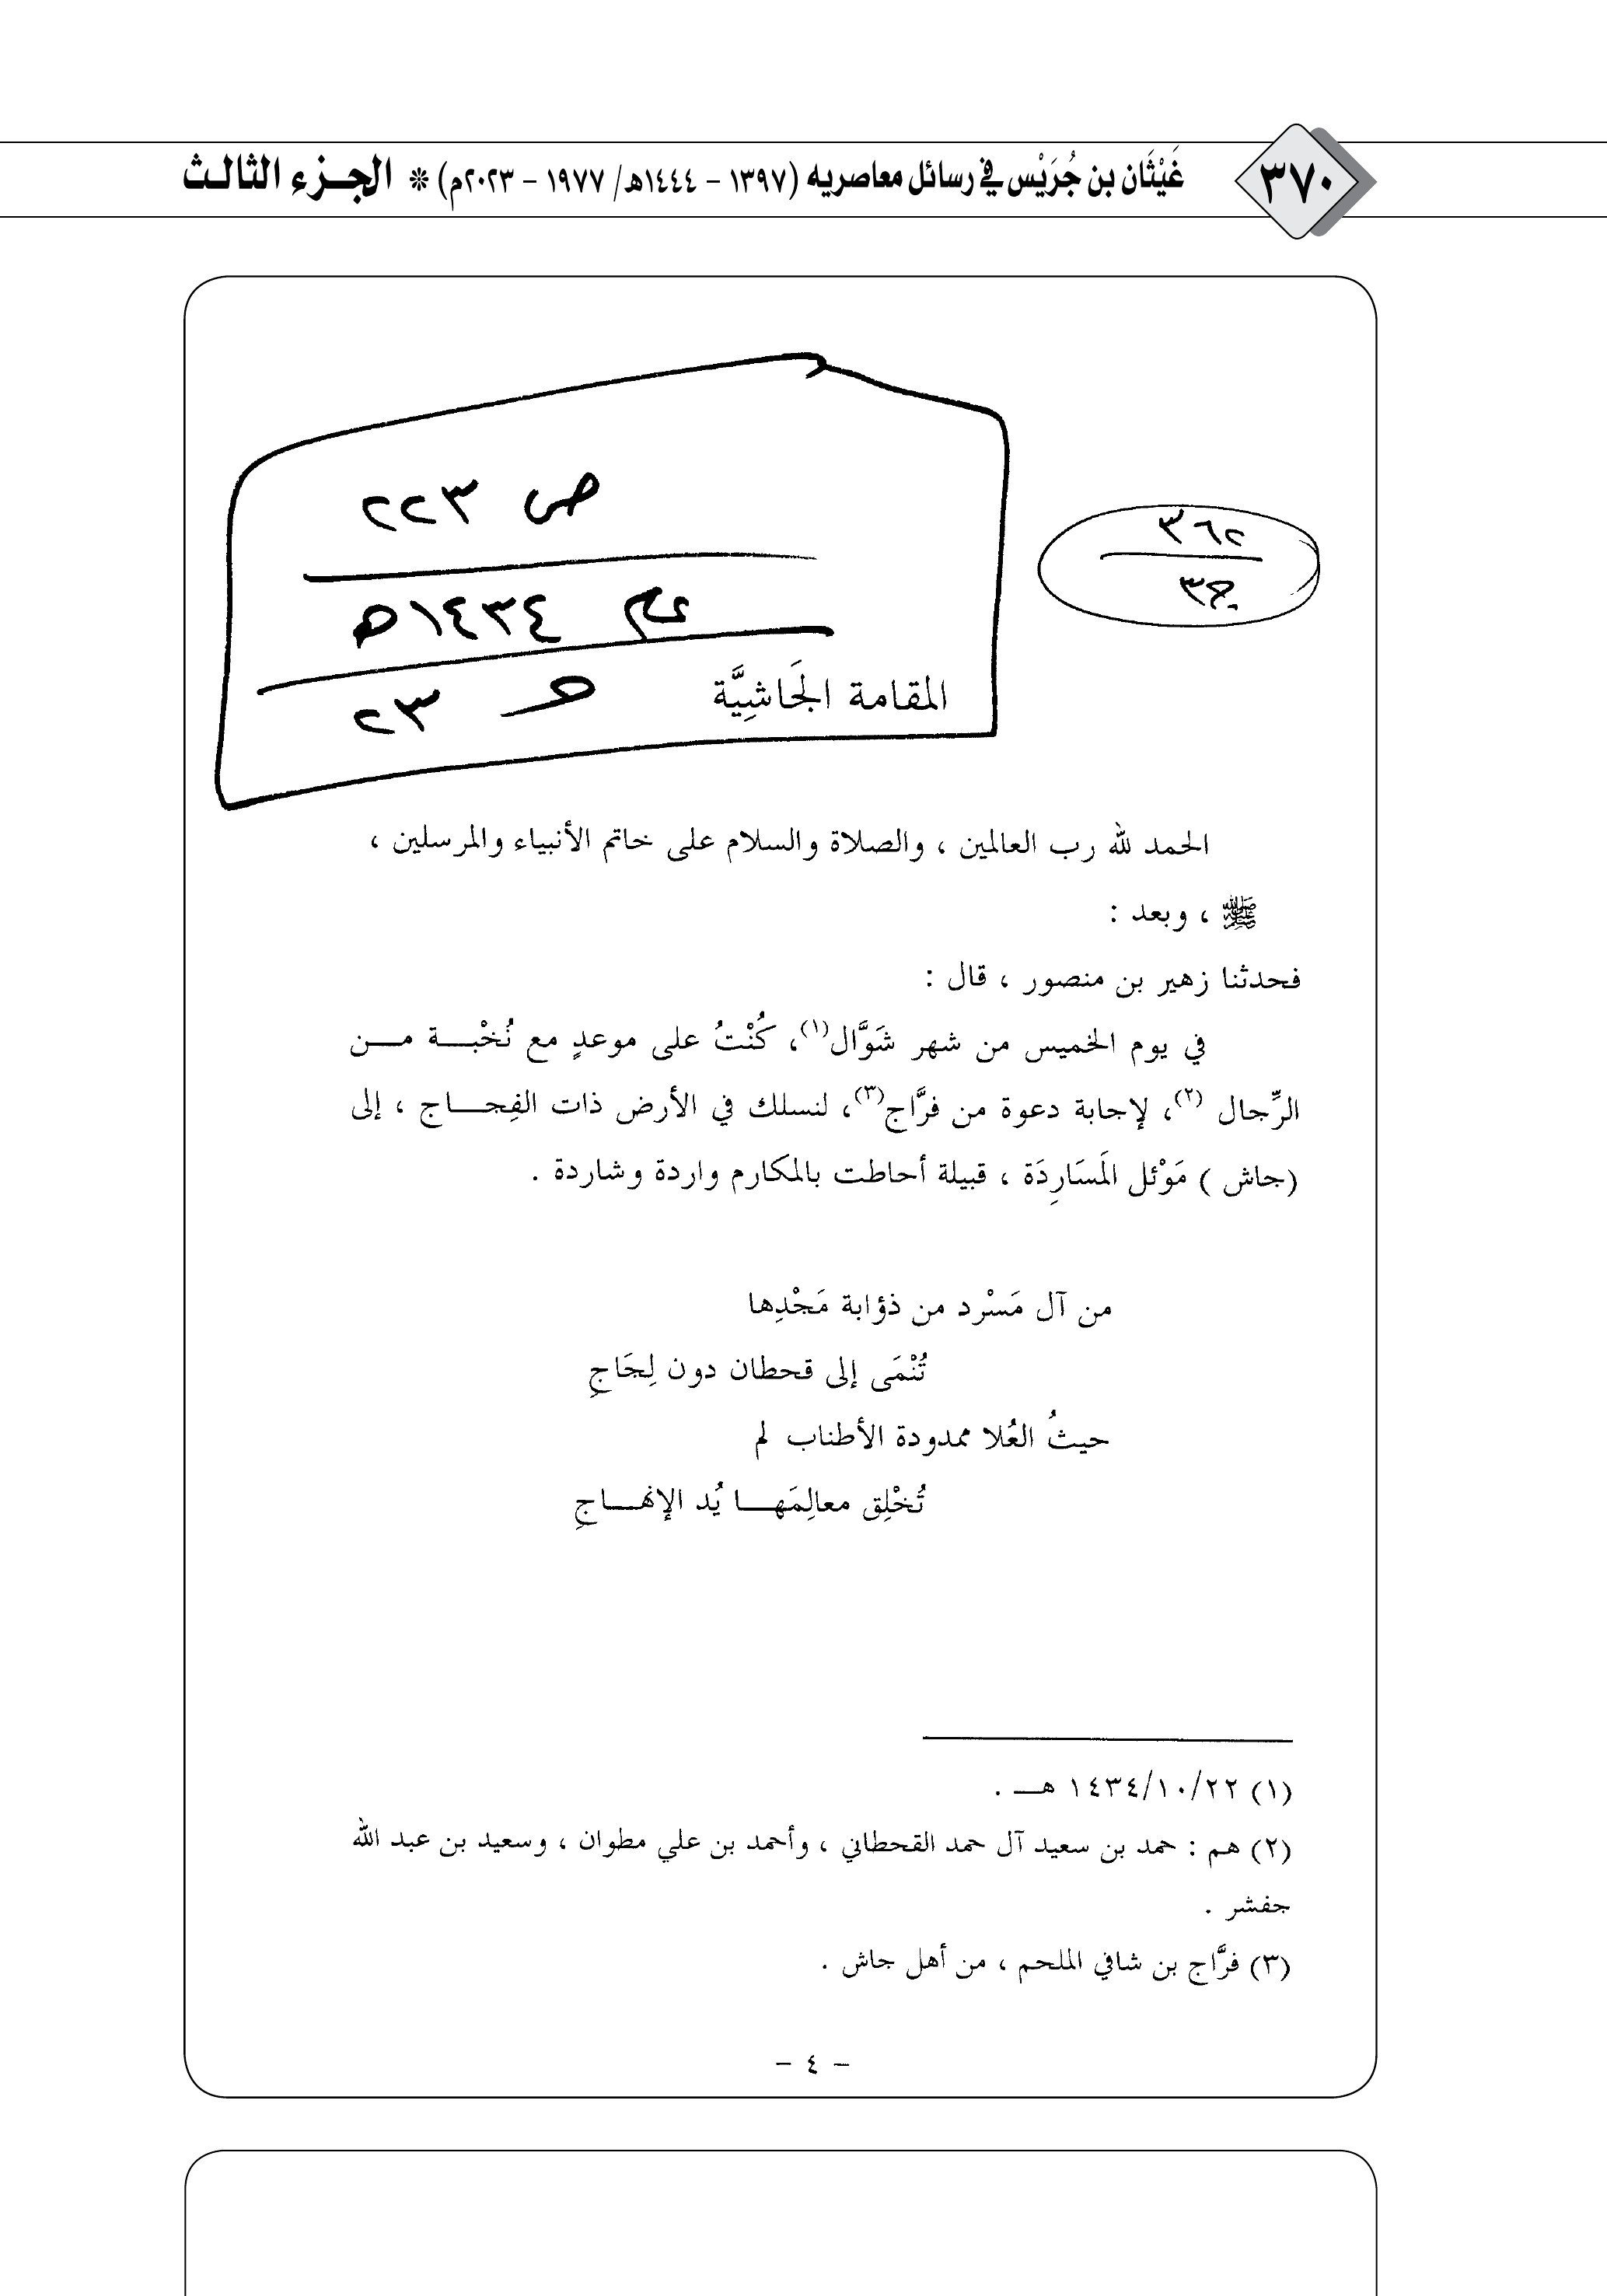 ٣٧٠
غَيْثَان بن جُرَيْس في رسائل معاصريه (١٣٩٧ - ١٤٤٤هـ/ ١٩٧٧ - ٢٠٢٣م) * الجزء الثالث
ص ٢٢٣
٣٦٢
ج٣
١٤٣٤هـ
المقامة الجَاشِيَّة
٢٣
الحمد لله رب العالمين ، والصلاة والسلام على خاتم الأنبياء والمرسلين ،
ﷺ ، وبعد :
فحدثنا زهير بن منصور ، قال :
في يوم الخميس من شهر شَوَّال(١)، كُنْتُ على موعدٍ مع نُخْبـــة مـــن
الرِّجال (٢)، لإجابة دعوة من فرَّاج(٣)، لنسلك في الأرض ذات الفِجـــاج ، إلى
(جاش ) مَوْئل المَسَارِدَة ، قبيلة أحاطت بالمكارم واردة وشاردة .
من آل مَسْرد من ذؤابة مَجْدِها
تُنْمَى إلى قحطان دون لِجَاجِ
حيثُ العُلا ممدودة الأطناب لم
تُخْلِق معالِمَهـــا يُد الإنهـــاجِ
(١) ١٤٣٤/١٠/٢٢ هـــ .
(٢) هم : حمد بن سعيد آل حمد القحطاني ، وأحمد بن علي مطوان ، وسعيد بن عبد الله
جفشر .
(٣) فرَّاج بن شافي الملحم ، من أهل جاش .
- ٤ -